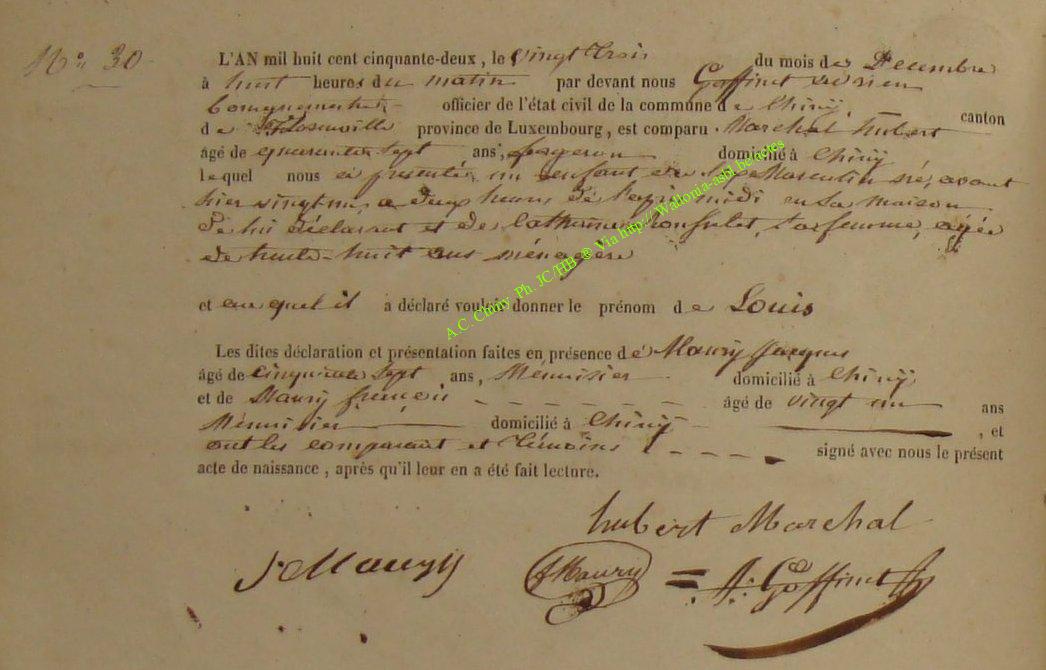 N° 30
L'AN mil huit cent cinquante-deux, le vingt trois du mois de Décembre
à huit heures du matin par devant nous Goffinet
officier de l'état civil de la commune de Chiny canton
de province de Luxembourg, est comparu Marchal hubert
âgé de quarante sept ans, forgeron domicilié à Chiny
lequel nous a présenté un enfant du sexe Masculin né, avant
hier vingt un, a deux heures de l'après midi en sa maison
de lui déclarant et de Catherine sa femme, agée
de trente-huit ans ménagere
et au quel il a déclaré vouloir donner le prénom de Louis
Les dites déclaration et présentation faites en présence de Maury Jacques
âgé de cinquante sept ans, Ménuisier domicilié à Chiny
et de Maury françois âgé de vingt un ans
Ménuisier domicilié à Chiny , et
ont les comparant et témoins signé avec nous le présent
acte de naissance, après qu'il leur en a été fait lecture.
hubert Marchal
J Maury
f Maury
Goffinet
A.C. Chiny, Ph. JC/HB ® Via http://Wallonia-asbl.be/actes